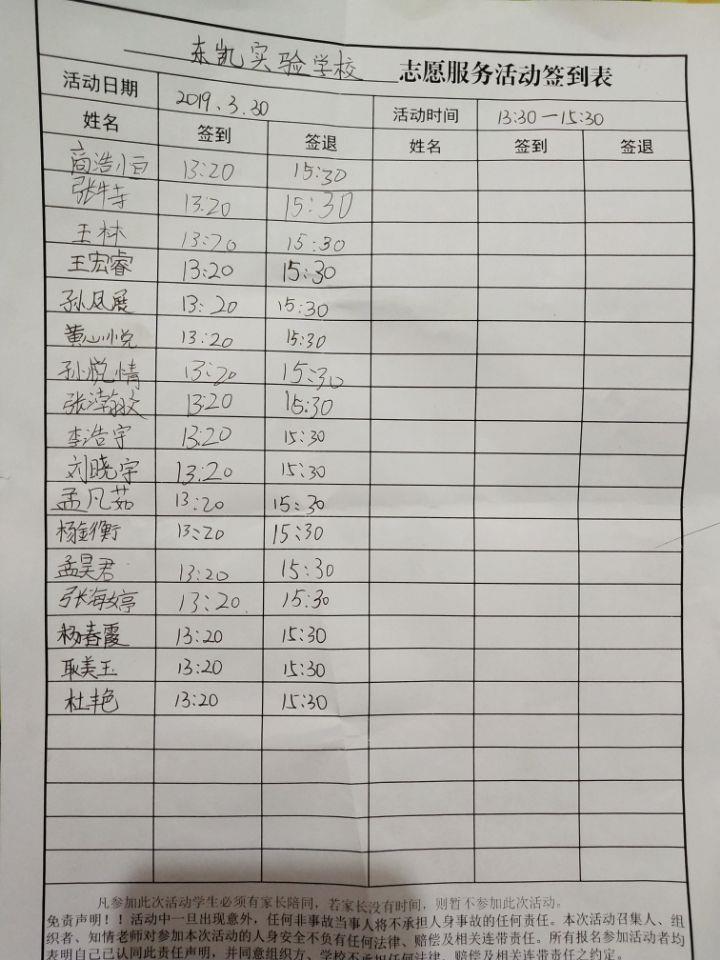 东凯实验学校 志愿服务活动签到表
活动日期 2019.3.30 活动时间 13:30—15:30
姓名 签到 签退 姓名 签到 签退
商浩恒 13:20 15:30
13:20 15:30
王林 13:20 15:30
王宏睿 13:20 15:30
孙凤展 13:20 15:30
黄心悦 13:20 15:30
孙悦情 13:20 15:30
13:20 15:30
李浩宇 13:20 15:30
刘晓宇 13:20 15:30
孟凡茹 13:20 15:30
杨衡 13:20 15:30
孟昊君 13:20 15:30
张海婷 13:20 15:30
杨春霞 13:20 15:30
耿美玉 13:20 15:30
杜丰艳 13:20 15:30
凡参加此次活动学生必须有家长陪同，若家长没有时间，则暂不参加此次活动。
免责声明！！活动中一旦出现意外，任何非事故当事人将不承担人身事故的任何责任。本次活动召集人、组
织者、知情老师对参加本次活动的人身安全不负有任何法律、赔偿及相关连带责任。所有报名参加活动者均
表明自己已认同此责任声明，并同意组织方、学校不承担任何法律、赔偿及相关连带责任之约定。